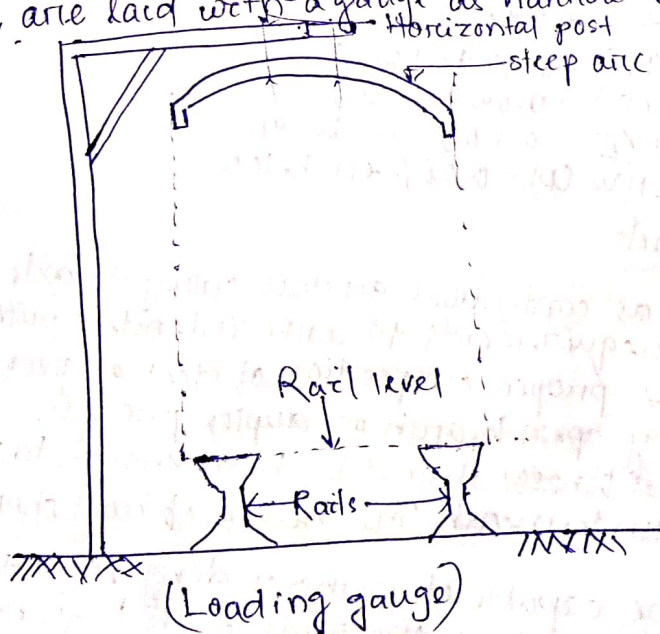 are laid with a gauge as narrow
Horizontal post
steep arc
Rail level
Rails
(Loading gauge)